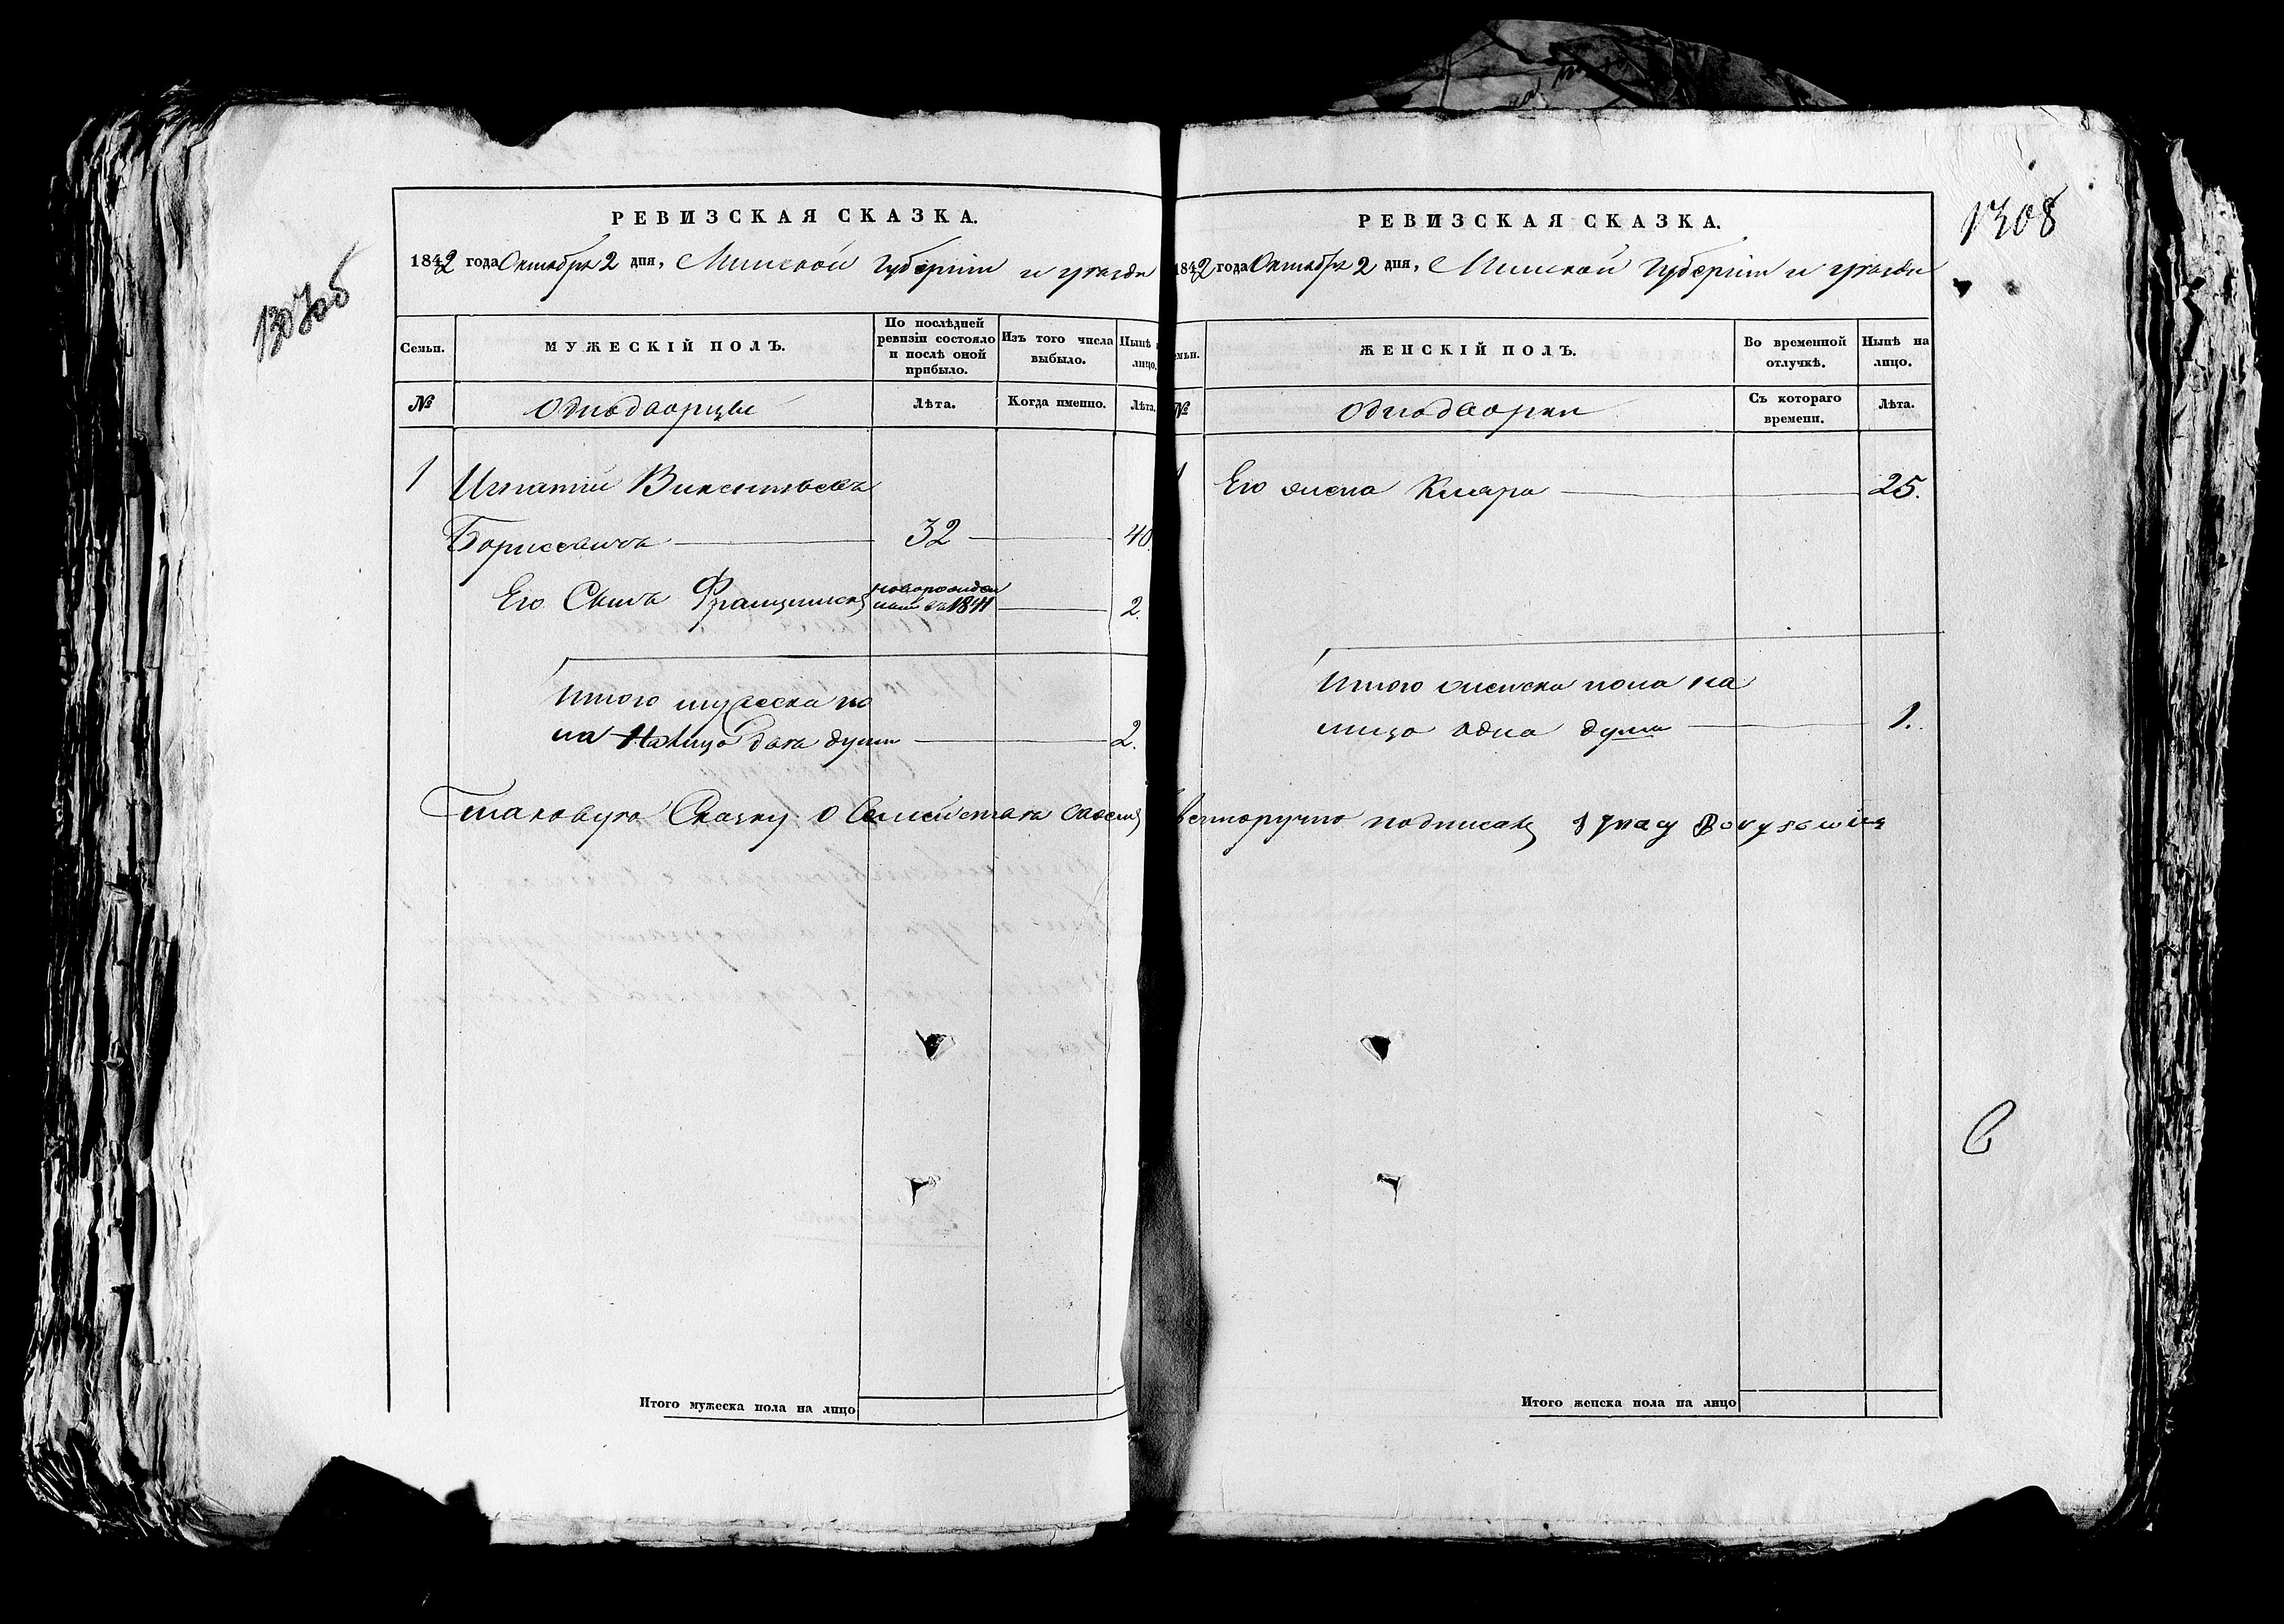 1307об
РЕВИЗСКАЯ СКАЗКА.
1842 года Октября 2 дня, Минской Губерніи и уѣзда
Семьи.
МУЖЕСКІЙ ПОЛЪ.
По послѣдней ревизіи состояло и послѣ оной прибыло.
Изъ того числа выбыло.
Нынѣ лицо.
№
Однодворцы
Лѣта.
Когда именно.
Лѣта.
1 Игнатій Викентьевъ
Борисевичъ 32 40.
Его Сынъ Францишекъ новорожден
ный въ 1841 2.
Итого мужеска по
ла На лицо двѣ души 2.
Таковую Сказку о Семействѣ своемъ
Итого мужеска пола на лицо
1308
РЕВИЗСКАЯ СКАЗКА.
1842 года Октября 2 дня, Минской Губерніи и уѣзда
емьи.
ЖЕНСКІЙ ПОЛЪ.
Во временной отлучкѣ.
Нынѣ на лицо.
№
Однодворки
Съ котораго времени.
Лѣта.
1 Его жена Клара 25.
Итого женска пола на
лицо одна душа 1.
подписалъ
Итого женска пола на лицо